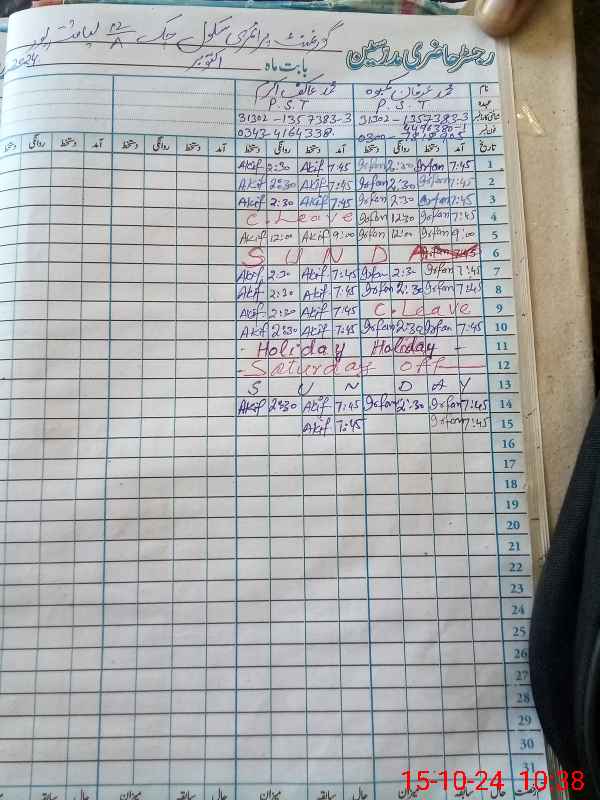 گورنمنٹ پرائمری سکول چک 12/A لیاقت پور
رجسٹر حاضری مدرسین
بابت ماہ اکتوبر 2024
نام محمد عرفان محمد عاکف اکرم
عہدہ P.S.T P.S.T
31302-1357383-3 31302-1357383-3
0343-4164338
تاریخ آمد دستخط روانگی دستخط آمد دستخط روانگی دستخط آمد دستخط روانگی دستخط آمد دستخط روانگی دستخط
Akif 2:30 Akif 7:45 Irfan 2:30 Irfan 7:45 1
Akif 2:30 Akif 7:45 Irfan 2:30 Irfan 7:45 2
Akif 2:30 Akif 7:45 Irfan 2:30 Irfan 7:45 3
C.Leave Irfan 12:30 Irfan 7:45 4
Akif 12:00 Akif 9:00 Irfan 12:00 Irfan 9:00 5
S U N D A 6
Akif 2:30 Akif 7:45 Irfan 2:30 Irfan 7:45 7
Akif 2:30 Akif 7:45 Irfan 2:30 Irfan 7:45 8
Akif 2:30 Akif 7:45 C.Leave 9
Akif 2:30 Akif 7:45 Irfan 2:30 Irfan 7:45 10
Holiday Holiday 11
Saturday off 12
S U N D A Y 13
Akif 2:30 Akif 7:45 Irfan 2:30 Irfan 7:45 14
Akif 7:45 Irfan 7:45 15
16
17
18
19
20
21
22
23
24
25
26
27
28
29
30
31
رخصت حال سابقہ میزان حال سابقہ میزان حال سابقہ میزان حال
15-10-24 10:38